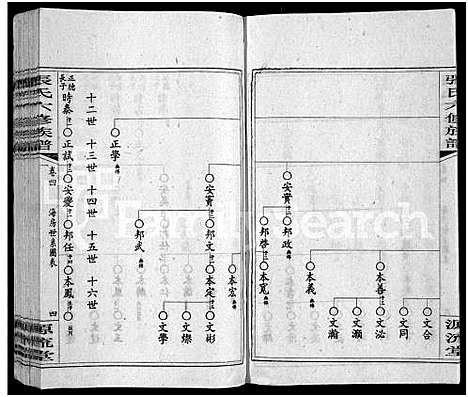 張氏六修族譜
源流堂
文合
文同
本善
文泌
文灝
文瀚
本義
安實
邦政
邦啓
本寬
本宏
安實
邦文
本定
文彬
文燦
文學
邦武
正學
十二世
十三世
十四世
十五世
十六世
正德長子
時泰
正試
安變
邦任
本鳳
張氏六修族譜
卷四
海房世系圖表
四
源流堂
FamilySearch